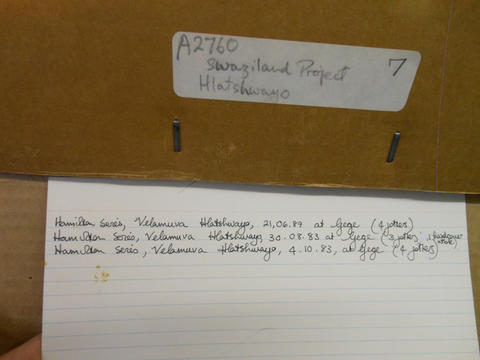 A2760 7
Swaziland Project
Hlatshwayo
Hamilton Series, Velamuva Hlatshwayo, 21,06.89 at Gege (4 jotters)
Hamilton Series, Velamuva Hlatshwayo, 30.08.83 at Gege (3 jotters
Hamilton Series, Velamuva Hlatshwayo, 4.10.83, at Gege (4 jotters)